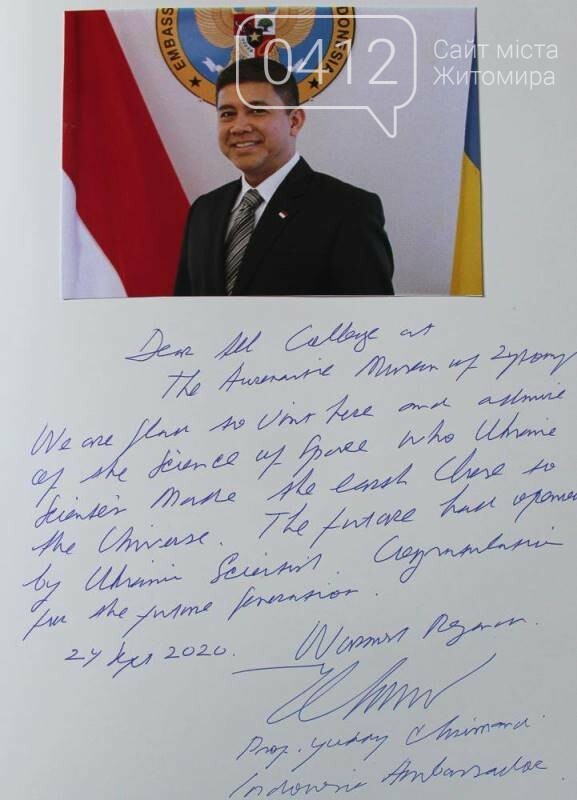 EMBASS
DONESIA
0412
Сайт міста
Житомира
Dear All College at
The Museum of
We are glad to visit here and admire
of the Science of Space who Ukraine
Scientis made the earth close to
the Universe. The future had opened
by Ukraine Scientist. Congratulation
for the future generation.
24 Sept 2020. Warmest Regards.
Prof. Yuddy Chrisnandi
Indonesia Ambassador